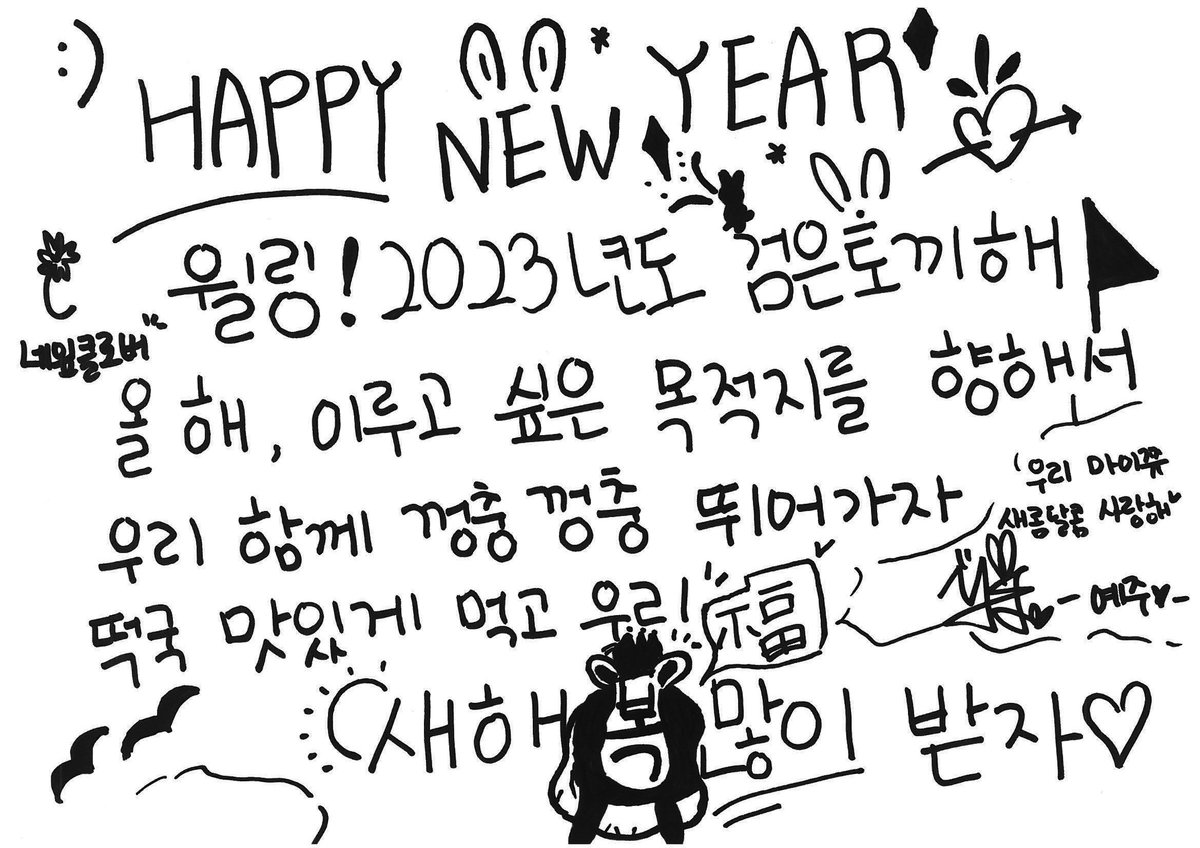 :)
HAPPY NEW YEAR
윌링! 2023년도 검은토끼해
네잎클로버
올 해, 이루고 싶은 목적지를 향해서
우리 함께 껑충껑충 뛰어가자
우리 마이쮸
새콤달콤 사랑해
떡국 맛있게 먹고 우리!
福
-예주♥-
새해 복 많이 받자♡